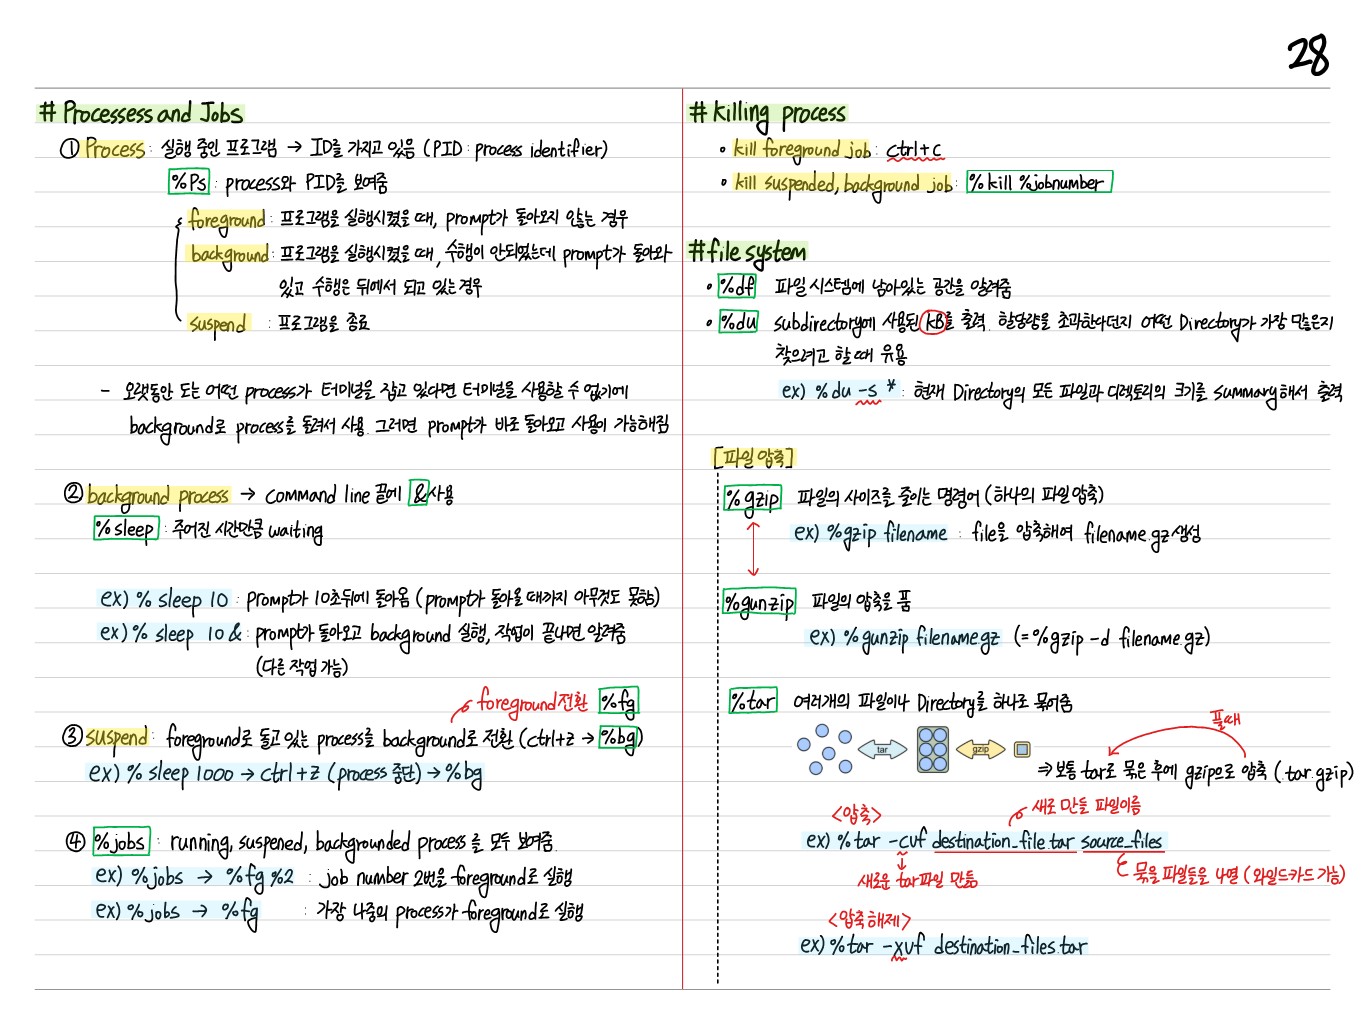 28
# Processess and Jobs
① Process : 실행 중인 프로그램 → ID를 가지고 있음 (PID : process identifier)
%Ps : process와 PID를 보여줌
foreground : 프로그램을 실행시켰을 때, prompt가 돌아오지 않는 경우
background : 프로그램을 실행시켰을 때, 수행이 안되었는데 prompt가 돌아와
있고 수행은 뒤에서 되고 있는 경우
suspend : 프로그램을 종료
- 오랫동안 도는 어떤 process가 터미널을 잡고 있다면 터미널을 사용할 수 없기에
background로 process를 돌려서 사용. 그러면 prompt가 바로 돌아오고 사용이 가능해짐
② background process → command line 끝에 & 사용
%sleep : 주어진 시간만큼 waiting
ex) % sleep 10 : prompt가 10초뒤에 돌아옴 (prompt가 돌아올 때까지 아무것도 못함)
ex) % sleep 10 & : prompt가 돌아오고 background 실행, 작업이 끝나면 알려줌
(다른 작업 가능)
foreground 전환 %fg
③ suspend : foreground로 돌고 있는 process를 background로 전환 (ctrl+z → %bg)
ex) % sleep 1000 → ctrl+z (process 중단) → %bg
④ %jobs : running, suspened, backgrounded process를 모두 보여줌.
ex) %jobs → %fg %2 : job number 2번을 foreground로 실행
ex) %jobs → %fg : 가장 나중의 process가 foreground로 실행
# killing process
• kill foreground job : ctrl+c
• kill suspended, background job : % kill %jobnumber
# file system
• %df 파일 시스템에 남아있는 공간을 알려줌
• %du subdirectory에 사용된 kB를 출력. 할당량을 초과한다던지 어떤 Directory가 가장 많은지
찾으려고 할 때 유용
ex) %du -s * : 현재 Directory의 모든 파일과 디렉토리의 크기를 summary해서 출력
[파일 압축]
% gzip 파일의 사이즈를 줄이는 명령어 (하나의 파일 압축)
ex) %gzip filename : file을 압축해여 filename.gz 생성
%gunzip 파일의 압축을 품
ex) %gunzip filename.gz (=%gzip -d filename.gz)
%tar 여러개의 파일이나 Directory를 하나로 묶어줌
풀때
tar
gzip
⇒ 보통 tar로 묶은 후에 gzip으로 압축 (.tar.gzip)
<압축> 새로 만들 파일이름
ex) %tar -cvf destination_file.tar source_files
새로운 tar파일 만듦
묶을 파일들을 나열 (와일드카드 가능)
<압축 해제>
ex) %tar -xvf destination_files.tar